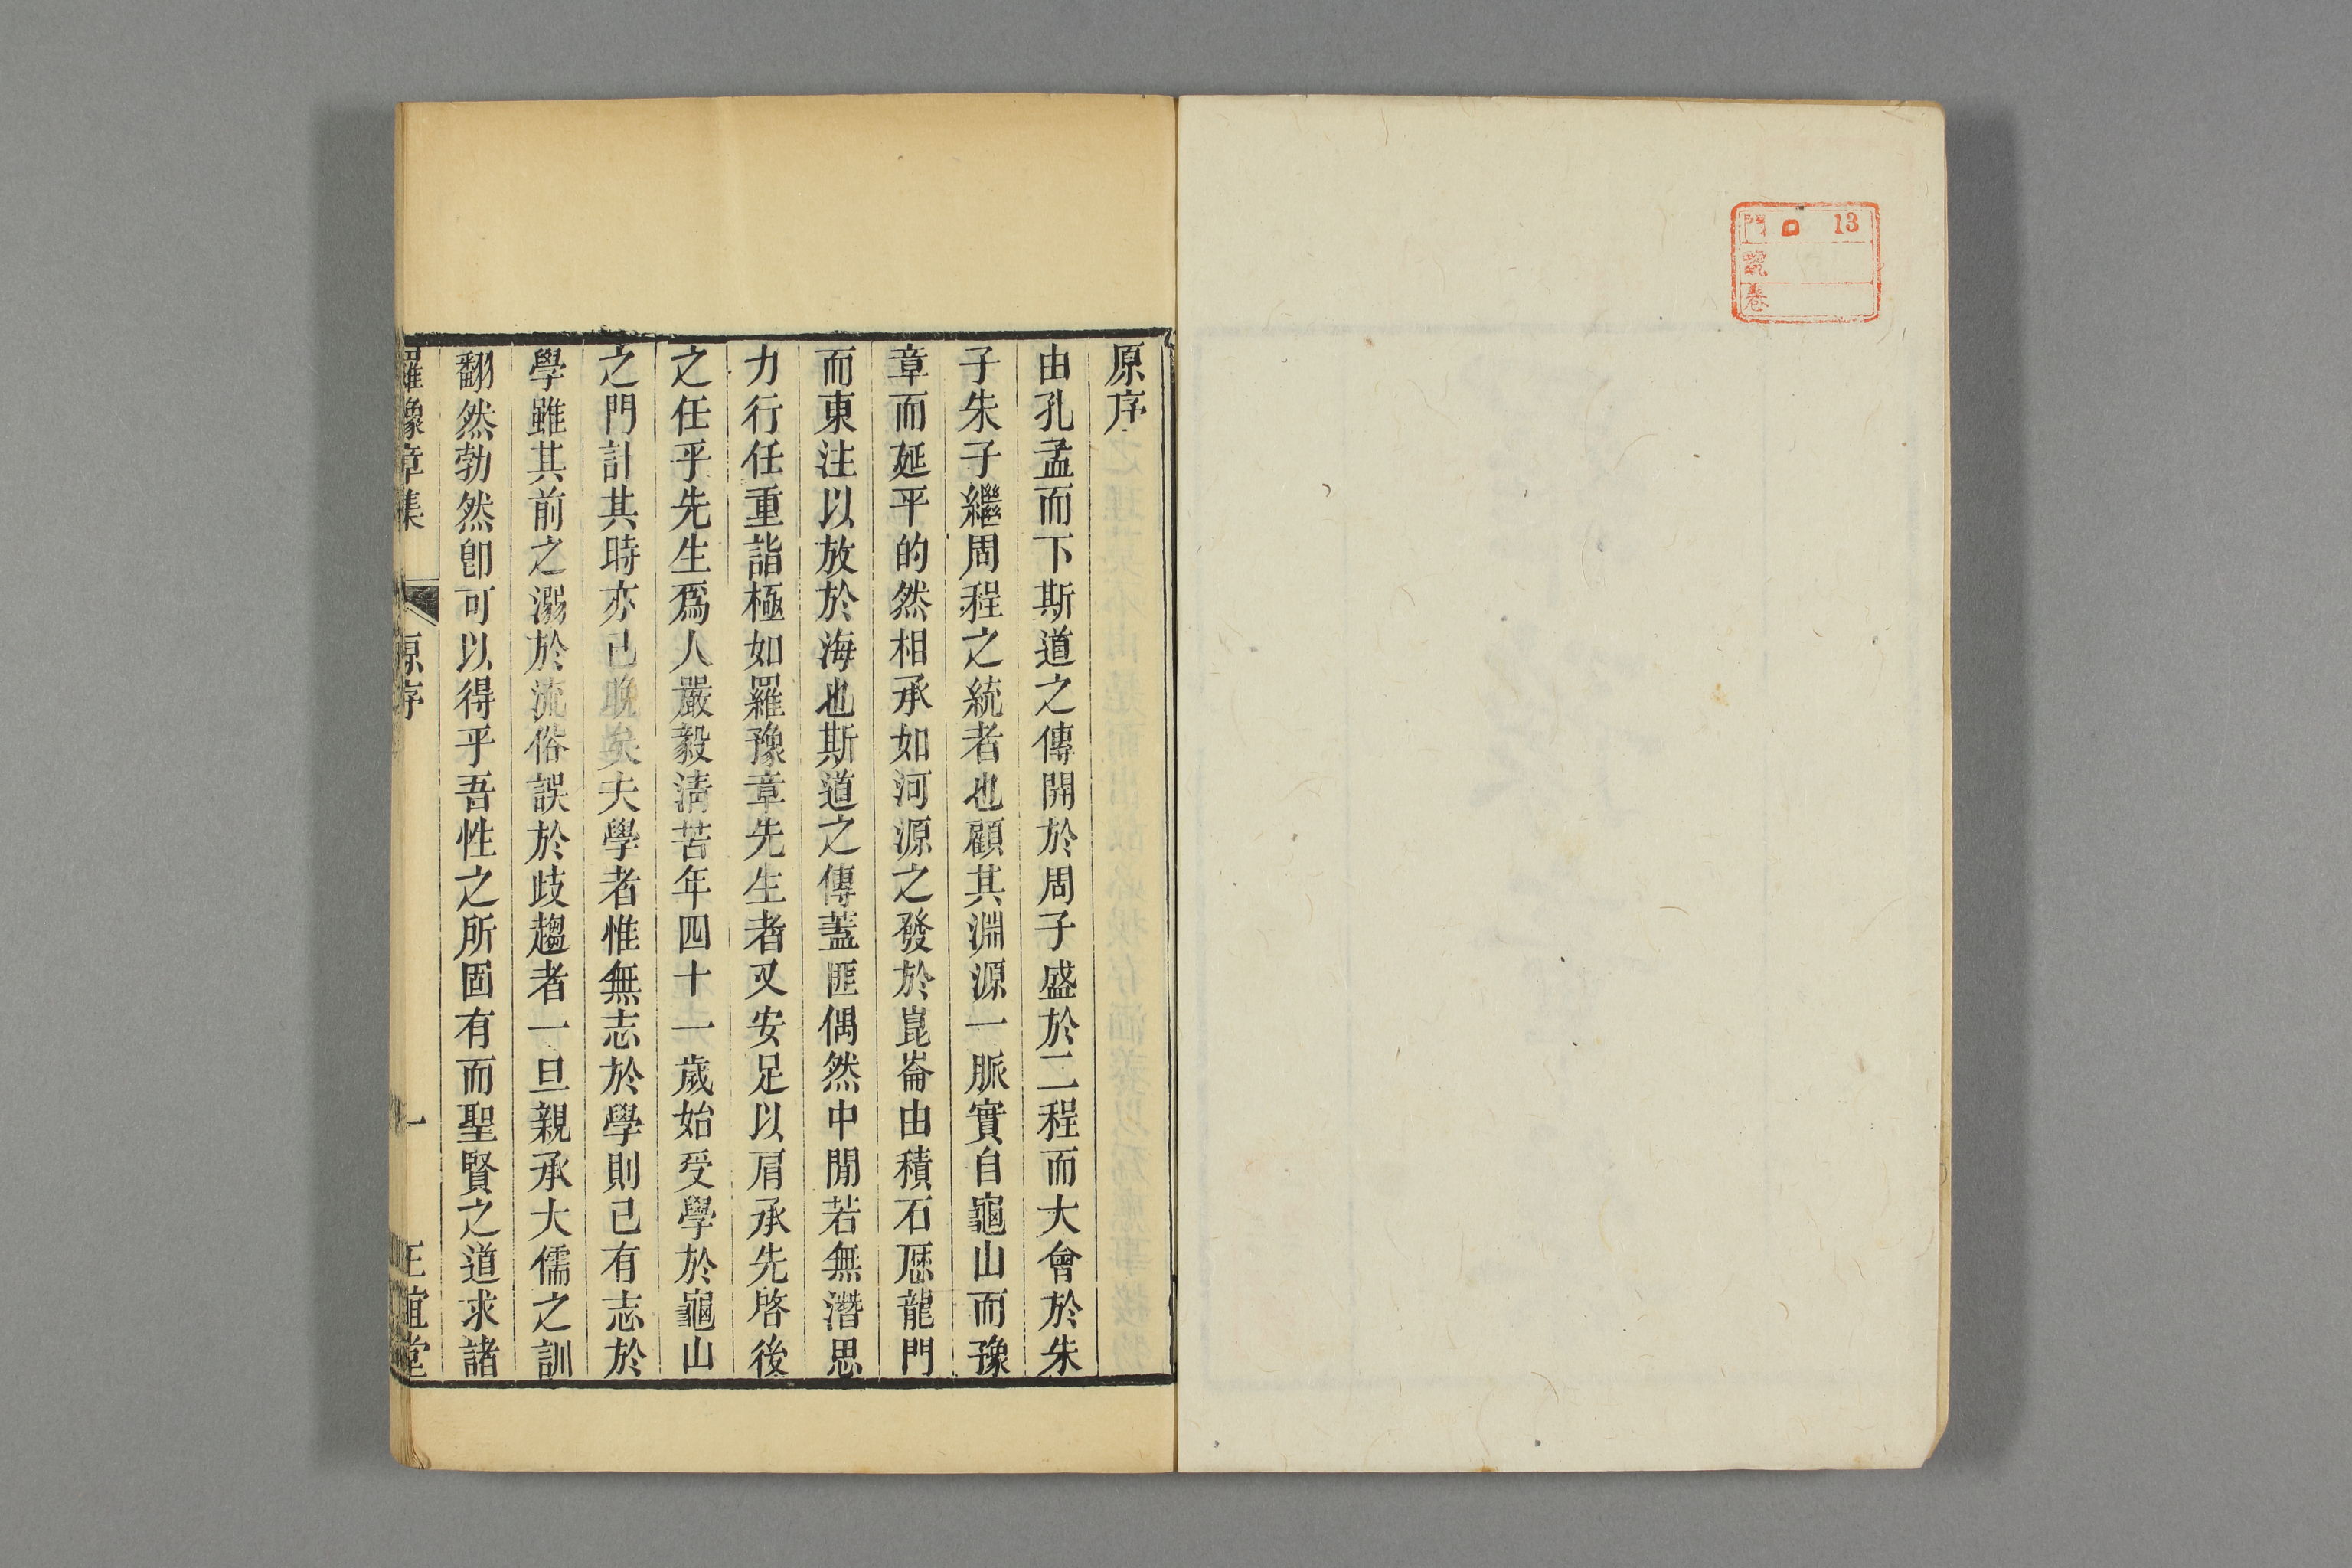 13
門
號
卷
原序
由孔孟而下斯道之傳開於周子盛於二程而大會於朱
子朱子繼周程之統者也顧其淵源一脈實自龜山而豫
章而延平的然相承如河源之發於崑崙由積石歴龍門
而東注以放於海也斯道之傳蓋匪偶然中閒若無潛思
力行任重詣極如羅豫章先生者又安足以肩承先啓後
之任乎先生爲人嚴毅清苦年四十一歲始受學於龜山
之門計其時亦已晚矣夫學者惟無志於學則已有志於
學雖其前之溺於流俗誤於歧趨者一旦親承大儒之訓
翻然勃然卽可以得乎吾性之所固有而聖賢之道求諸
羅豫章集
原序
一
正誼堂